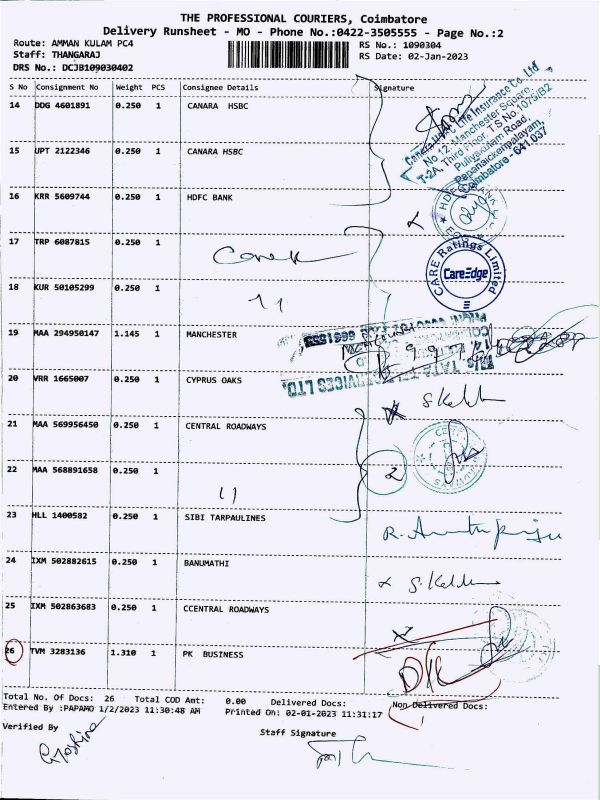 THE PROFESSIONAL COURIERS, Coimbatore
Delivery Runsheet - MO - Phone No.:0422-3505555 - Page No.:2
Route: AMMAN KULAM PC4 RS No.: 1090304
Staff: THANGARAJ RS Date: 02-Jan-2023
DRS No.: DCJB109030402
S No Consignment No Weight PCS Consignee Details Signature
14 DDG 4601891 0.250 1 CANARA HSBC
Canara HSBC Life Insurance Co. Ltd
No 12, Manchester Square,
T-2A, Third Floor, T S No.1075/B2
Puliyakulam Road,
Papanaickenpalayam,
Coimbatore - 641 037
15 UPT 2122346 0.250 1 CANARA HSBC
16 KRR 5609744 0.250 1 HDFC BANK
17 TRP 6087815 0.250 1
CARE Ratings Limited
CareEdge
18 KUR 50105299 0.250 1
11
19 MAA 294950147 1.145 1 MANCHESTER
20 VRR 1665007 0.250 1 CYPRUS OAKS
21 MAA 569956450 0.250 1 CENTRAL ROADWAYS
22 MAA 568891658 0.250 1
2
11
23 HLL 1400582 0.250 1 SIBI TARPAULINES
24 IXM 502882615 0.250 1 BANUMATHI
25 IXM 502863683 0.250 1 CCENTRAL ROADWAYS
26 TVM 3283136 1.310 1 PK BUSINESS
Total No. Of Docs: 26 Total COD Amt: 0.00 Delivered Docs: Non Delivered Docs:
Entered By :PAPAMO 1/2/2023 11:30:48 AM Printed On: 02-01-2023 11:31:17
Verified By
Staff Signature